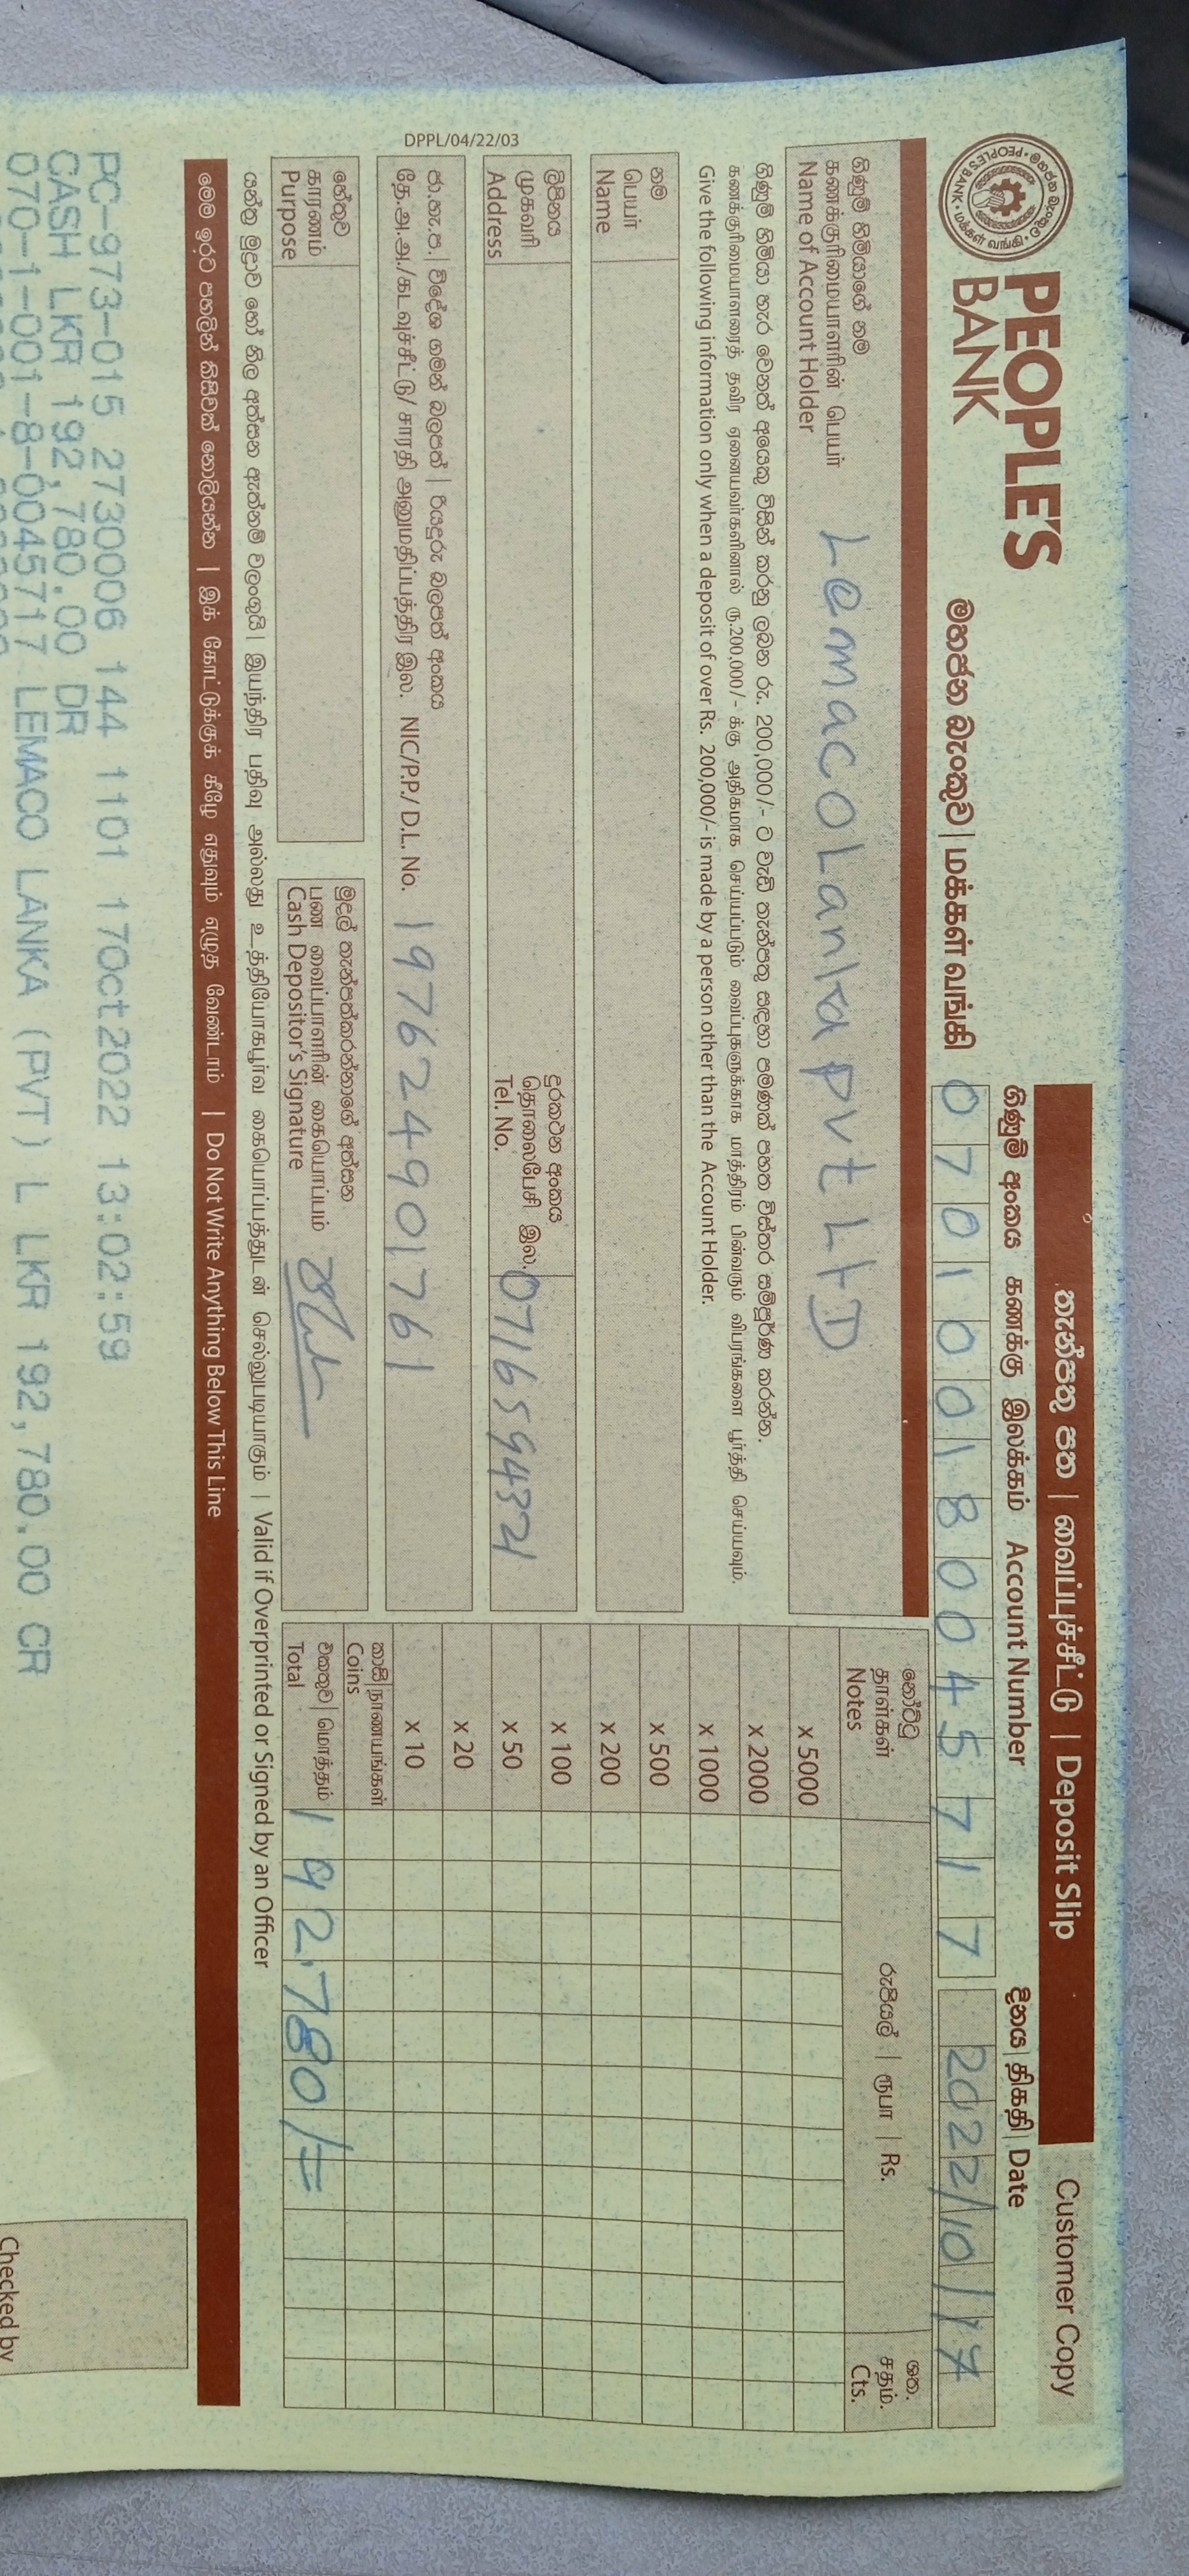 PEOPLE'S
BANK
මහජන බැංකුව | மக்கள் வங்கி
තැන්පතු පත | வைப்புச்சீட்டு | Deposit Slip
Customer Copy
ගිණුම් අංකය கணக்கு இலக்கம் Account Number
දිනය | திகதி | Date
070100180045717
2022/10/17
ගිණුම් හිමියාගේ නම
கணக்குரிமையாளரின் பெயர்
Name of Account Holder
Lemaco Lanka pvt LtD
ගිණුම් හිමියා හැර වෙනත් අයෙකු විසින් කරනු ලබන රු. 200,000/- ට වැඩි තැන්පතු සඳහා පමණක් පහත විස්තර සම්පූර්ණ කරන්න.
கணக்குரிமையாளரைத் தவிர ஏனையவர்களினால் ரூ.200,000/- க்கு அதிகமாக செய்யப்படும் வைப்புகளுக்காக மாத்திரம் பின்வரும் விபரங்களை பூர்த்தி செய்யவும்.
Give the following information only when a deposit of over Rs. 200,000/- is made by a person other than the Account Holder.
නම
பெயர்
Name
ලිපිනය
முகவரி
Address
දුරකථන අංකය
தொலைபேசி இல.
Tel. No.
0716594321
ජා.හැ.ප. | විදේශ ගමන් බලපත් | රියදුරු බලපත් අංකය
தே.அ.அ./கடவுச்சீட்டு/ சாரதி அனுமதிப்பத்திர இல. NIC/P.P./ D.L. No.
197624901761
හේතුව
காரணம்
Purpose
මුදල් තැන්පත්කරන්නාගේ අත්සන
பண வைப்பாளரின் கையொப்பம்
Cash Depositor's Signature
නෝට්ටු
தாள்கள்
Notes
රුපියල් | ரூபா | Rs.
ශත.
சதம்.
Cts.
x 5000
x 2000
x 1000
x 500
x 200
x 100
x 50
x 20
x 10
කාසි | நாணயங்கள்
Coins
එකතුව | மொத்தம்
Total
192,780/=
යන්ත්‍ර මුද්‍රාව හෝ නිල අත්සන ඇත්නම් වලංගුයි | இயந்திர பதிவு அல்லது உத்தியோகபூர்வ கையொப்பத்துடன் செல்லுபடியாகும் | Valid if Overprinted or Signed by an Officer
මෙම ඉරට පහළින් කිසිවක් නොලියන්න | இக் கோட்டுக்குக் கீழே எதுவும் எழுத வேண்டாம் | Do Not Write Anything Below This Line
DPPL/04/22/03
PC-973-015 2730006 144 1101 17Oct2022 13:02:59
CASH LKR 192,780.00 DR
070-1-001-8-0045717 LEMACO LANKA (PVT) L LKR 192,780.00 CR
Checked by